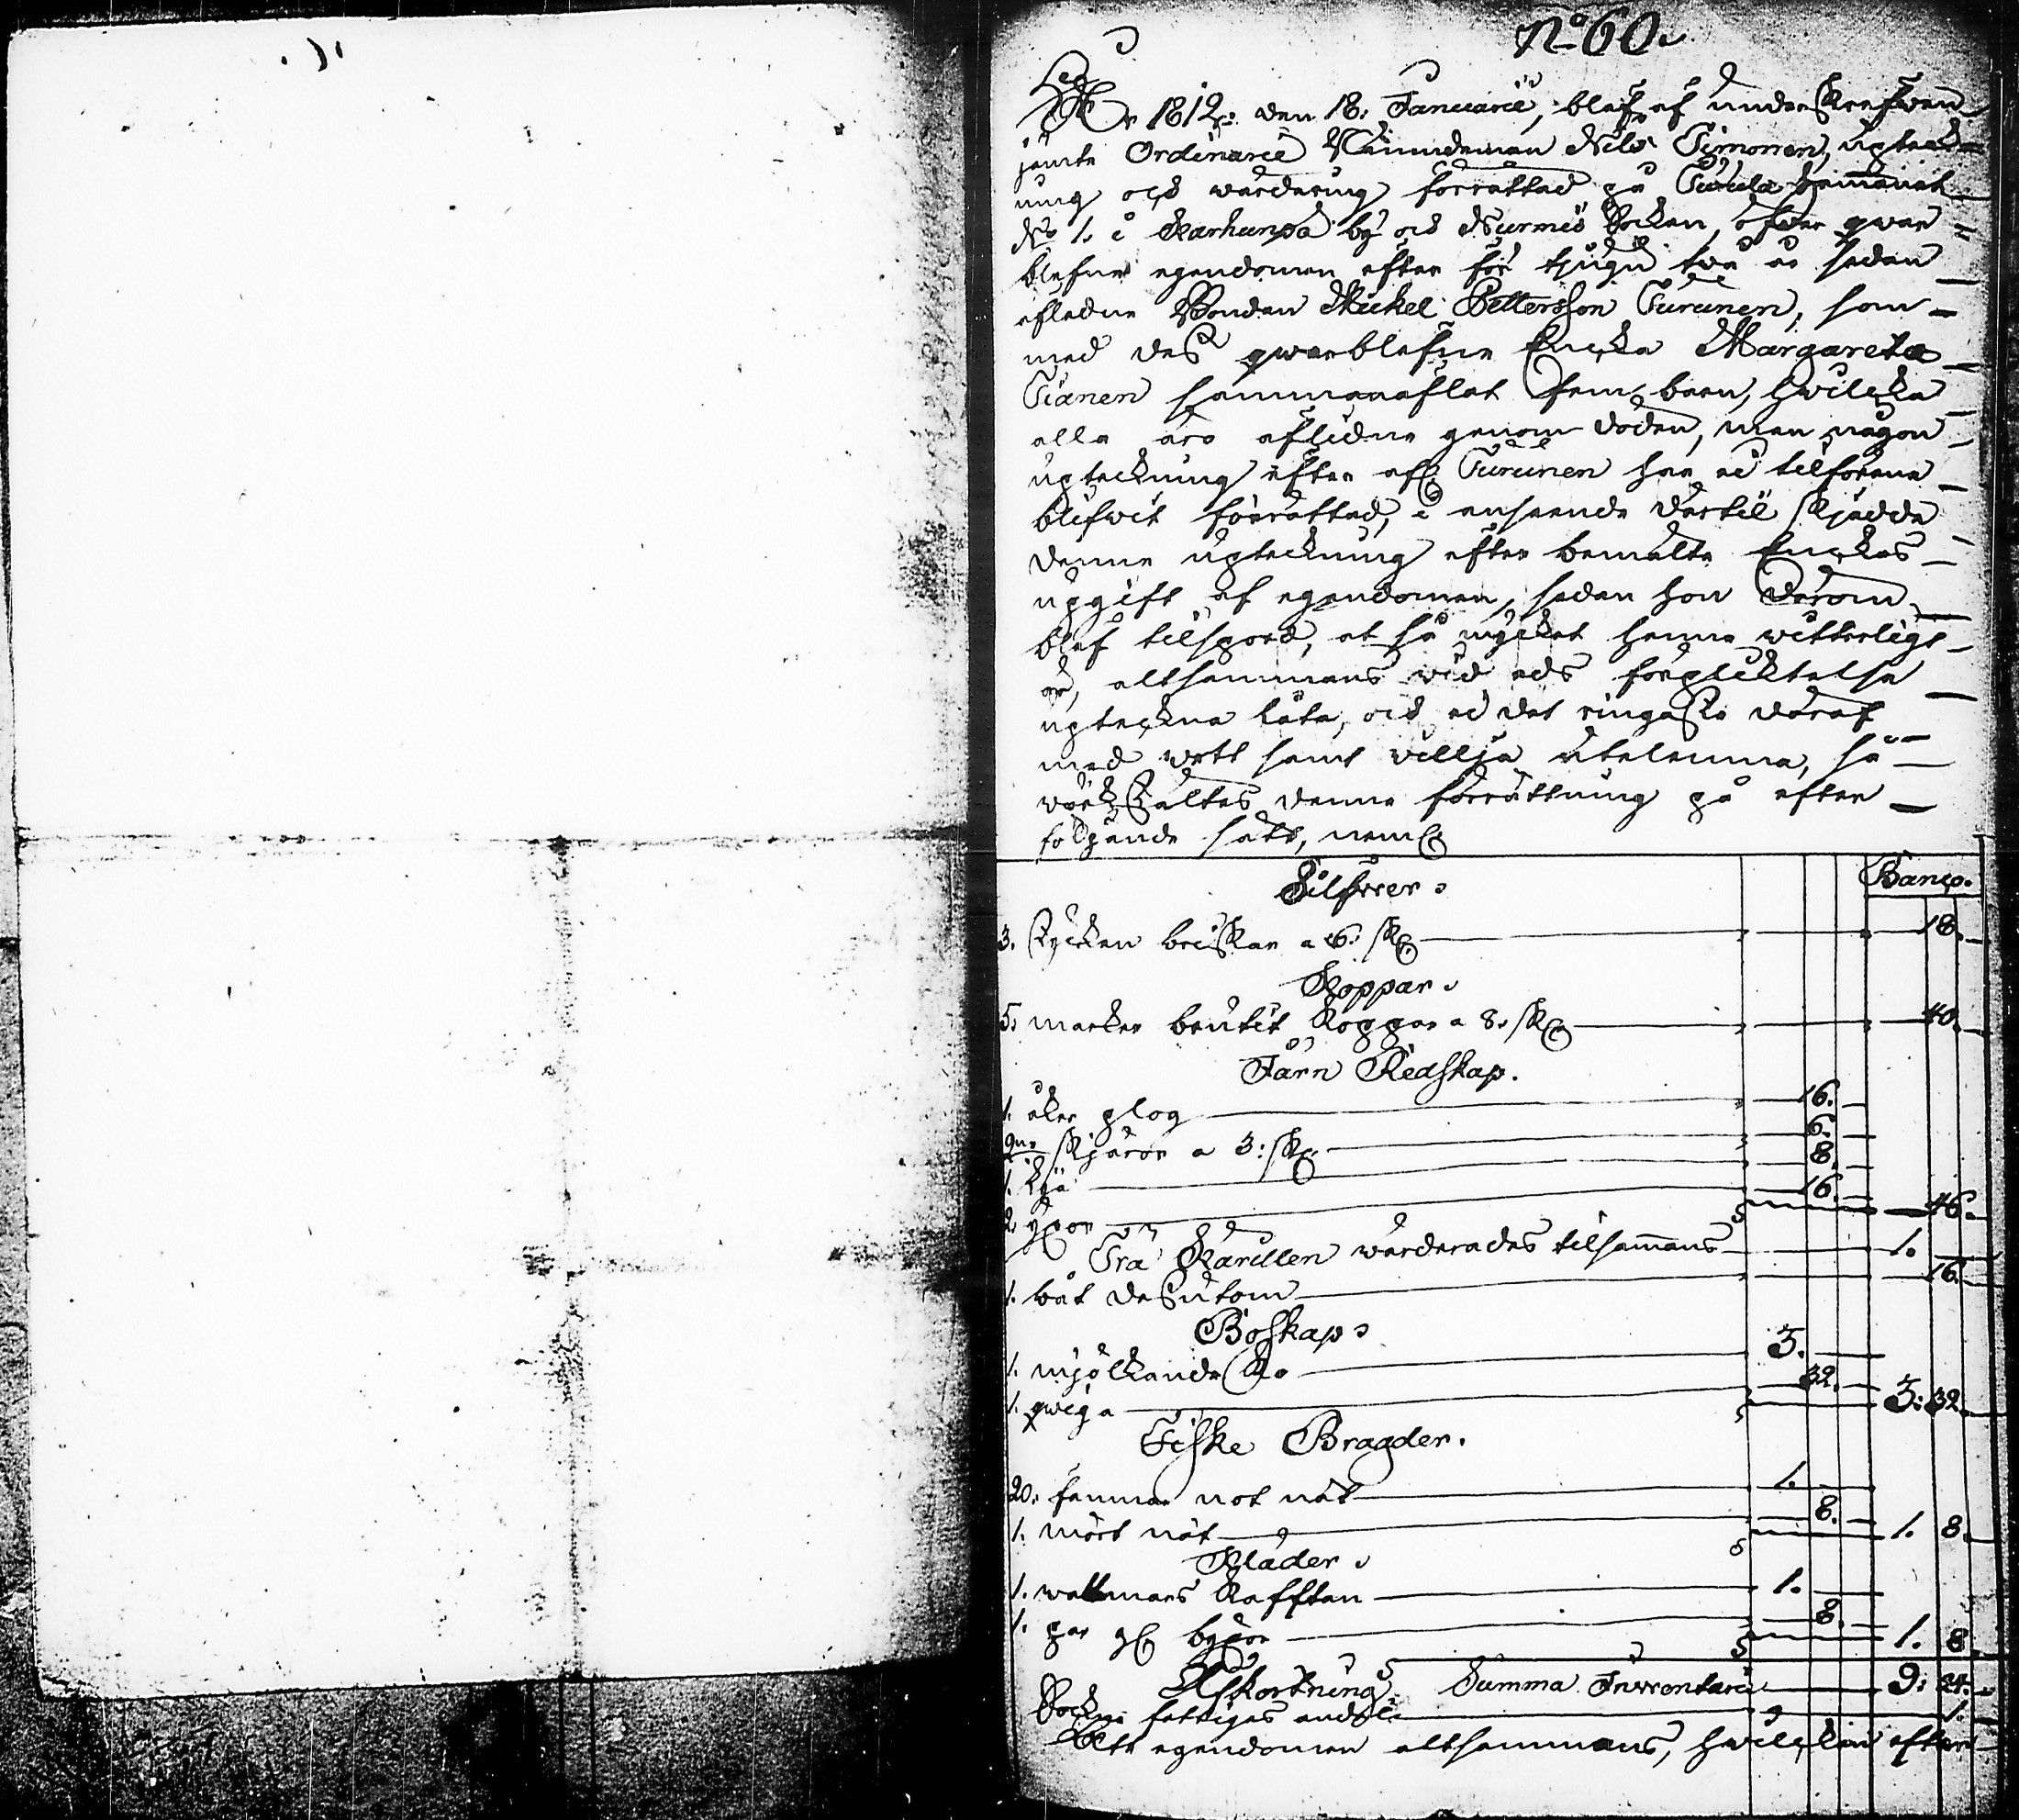 No 60.
År 1812: den 18: Januarii, blef af underskrefwen
jemte Ordinarie Nämndeman Nils Timonen, upteck-
ning och wärdering förrättad på Tuula hemmanet
No 1. i Karhunpä by och Nurmis Socken, öfver qwar-
blefne egendomen efter för tjugu två år sedan
afledne Bonden Mickel Pettersson Turunen, som
med des qwarblefne Encka Margareta
Tianen sammanaflat fem barn, hwilcka
alla äro aflidne genom döden, men någon
upteckning efter afl: Turunen har ej tilförene
blifwit förrättad, i anseende dertil skjedde
denne upteckning efter bemälte Enckas
upgift af egendomen, sedan hon derom
blef tilspord, at så mycket henne witterligt
är, altsammans wid eds förplicktelse
upteckna låta, och ej det ringaste deraf
med wett samt villja utelemna, så
wärckstältes denne förrättning på efter
följande sätt, neml:
Silfwer. Banco.
3. stycken briskor a 6: sk: 18.
Koppar.
5: marker brutit Koppar a 8: sk: 40.
Järn Redskap.
1. åker plog 16.
2ne skjäror a 3: sk: 6.
1. lya 8.
2 yxor 16. 46.
Trä Kärillen werderades tilsammans 1.
1. båt desutom 16.
Boskap.
1. mjölkande Ko 3.
1. qwiga 32. 3: 32.
Fiske Bragder.
20: famnar not nät 1.
1. mört nät 8. 1. 8.
Kläder.
1. wallmans Kafftan 1.
1. par gl: byxor 8. 1. 8.
Afkortning. Summa Inventarii 9: 24.
Sockne fattiges andel 1.
Att egendomen altsammans, hwilcken efter